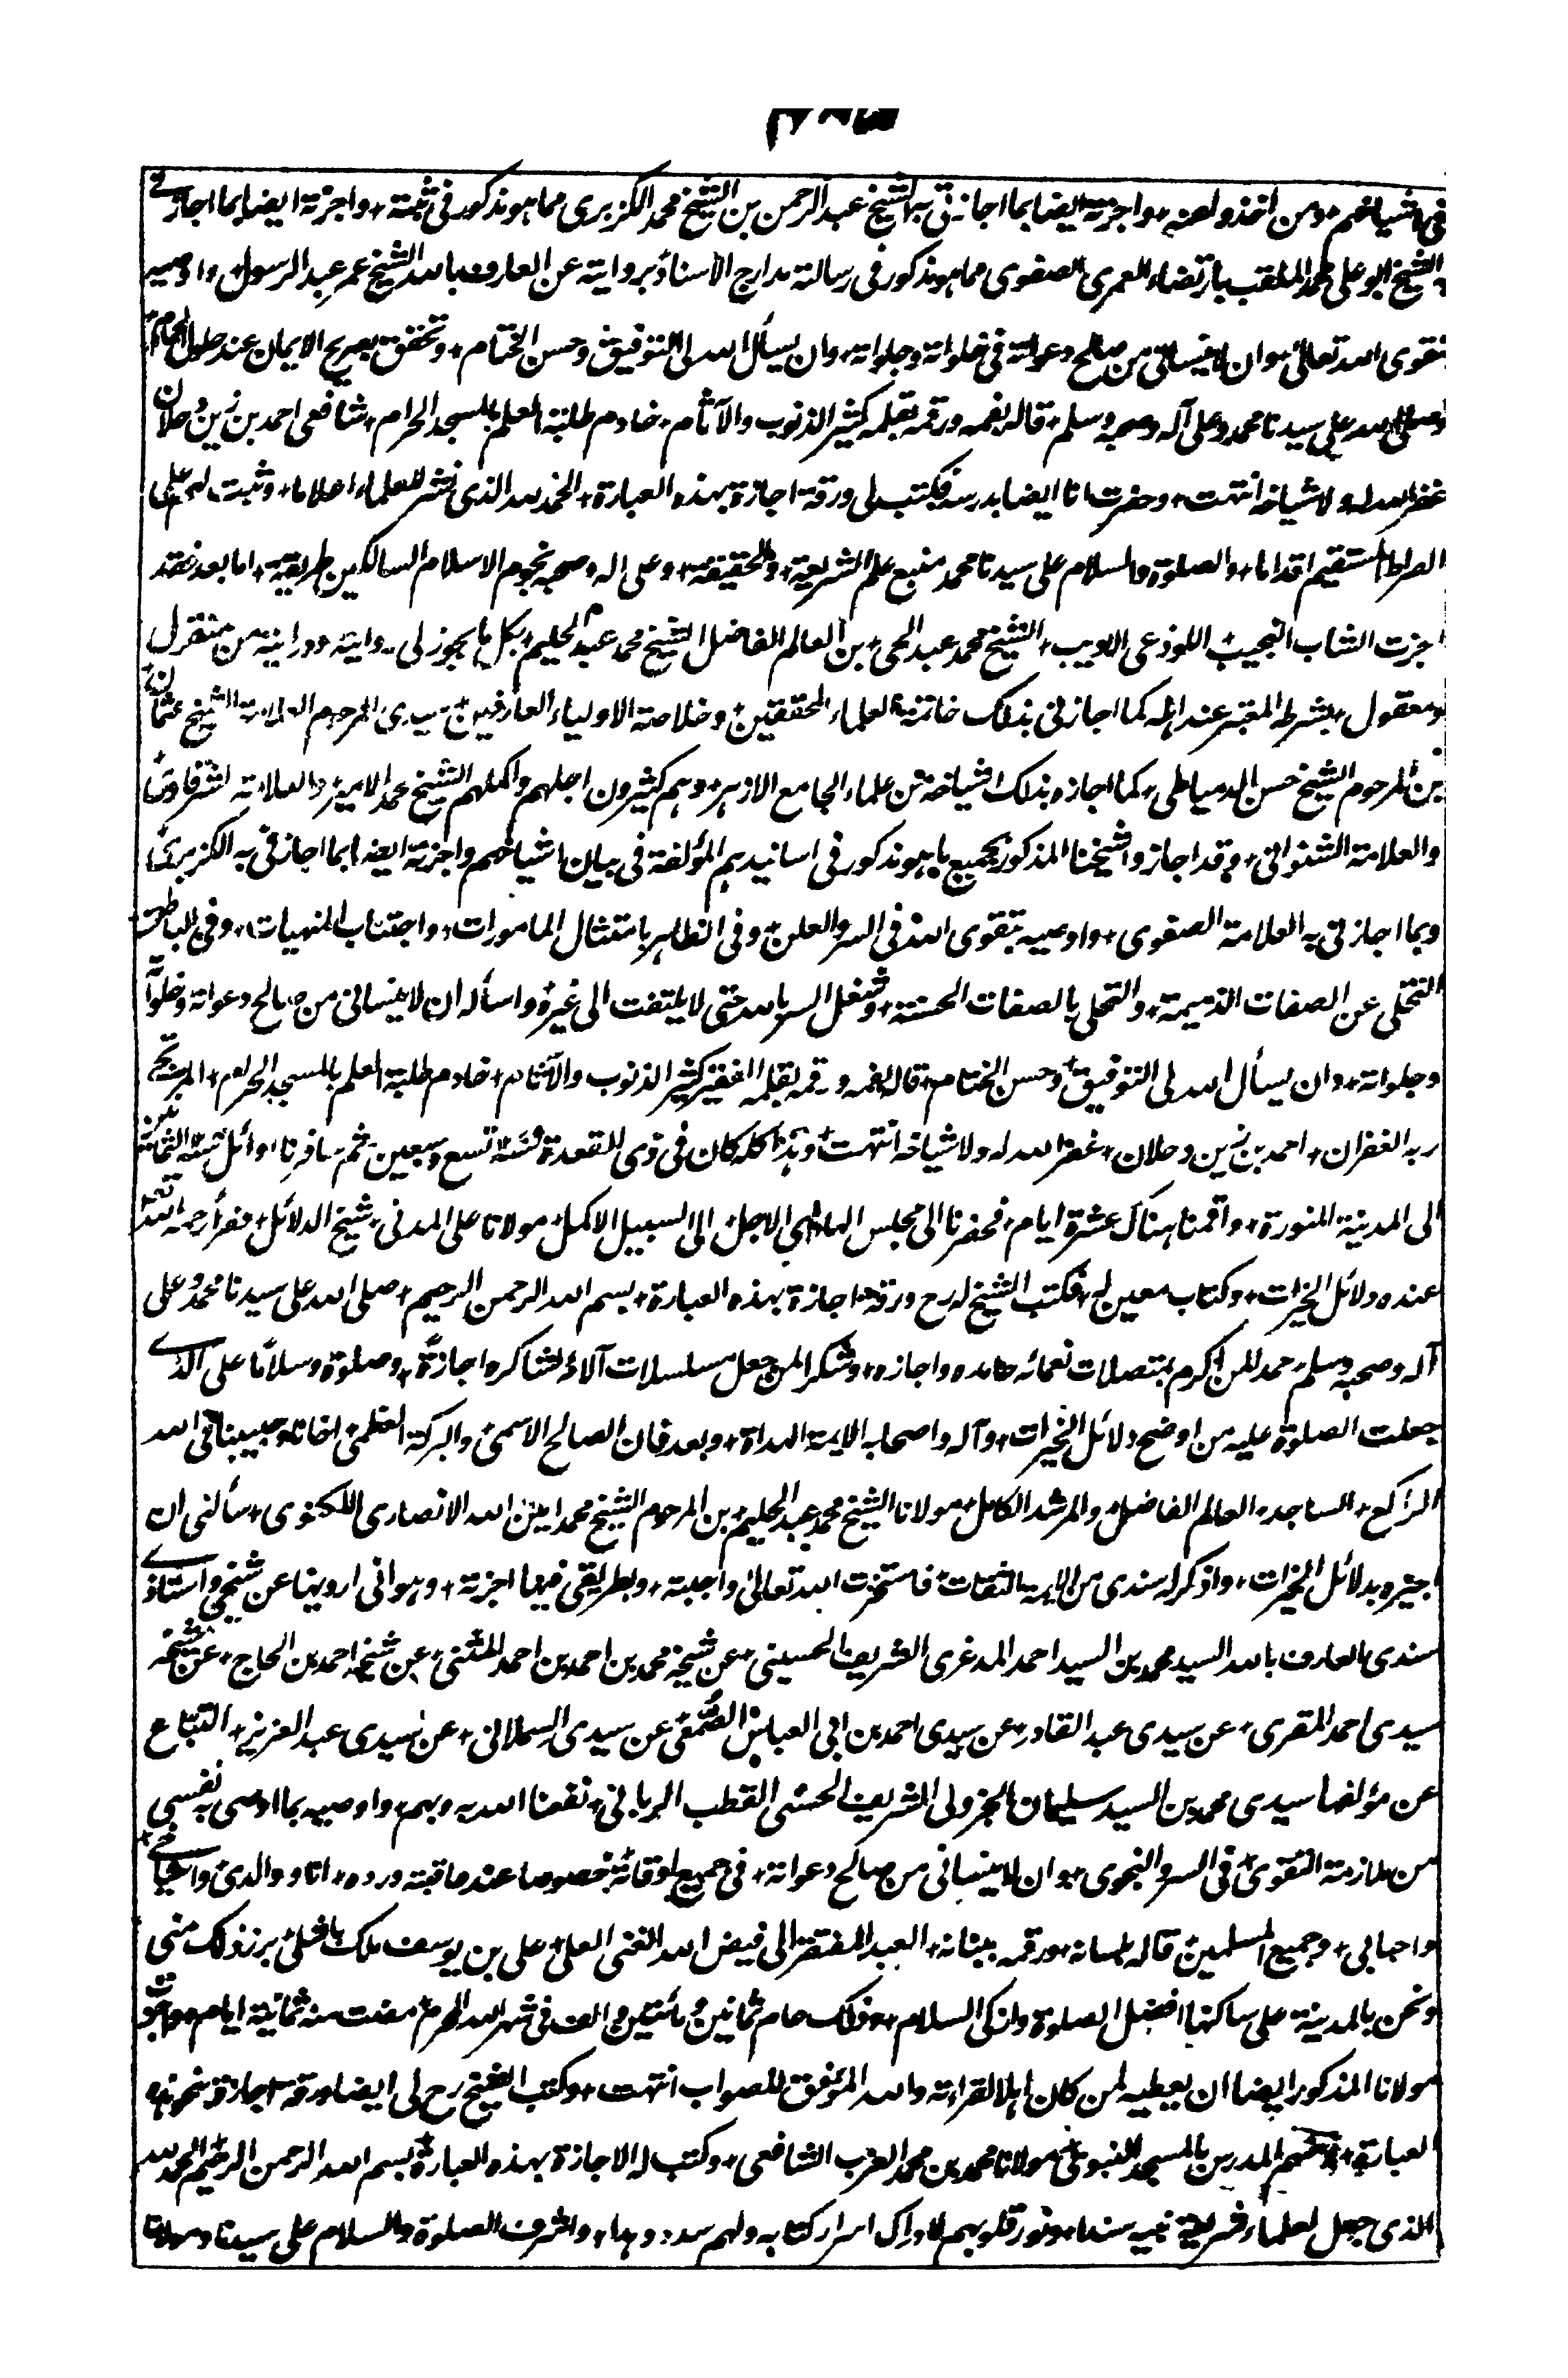 فى اشياخهم ومن اخذوا عنه واجزته ايضا بما اجازنى به الشيخ عبد الرحمن بن الشيخ محمد الكزبرى مما هو مذكور فى ثبته واجزته ايضا بما اجازنى
الشيخ ابو على محمد الملقب بارتضاء العمرى الصفوى مما هو مذكور فى رسالته مدارج الاسناد بروايته عن العارف بالله الشيخ عمر عبد الرسول واوصيه
بتقوى الله تعالى وان لا ينسانى من صالح دعواته فى خلواته وجلواته وان يسأل الله لى التوفيق وحسن الختام وتحقق بصريح الايمان عند حلول الحمام
وصلى الله على سيدنا محمد وعلى آله وصحبه وسلم قاله بفمه ورقمه بقلمه كثير الذنوب والآثام خادم طلبة العلم بالمسجد الحرام شافعى احمد بن زين دحلان
غفر الله له ولاشياخه انتهت وحضرت انا ايضا بدرسه فكتب لى ورقة اجازة بهذه العبارة الحمد لله الذى نشر للعلماء اعلاما وثبت لهم على
الصراط المستقيم اقداما والصلوة والسلام على سيدنا محمد منبع علم الشريعة والحقيقة وعلى اله وصحبه نجوم الاسلام السالكين طريقته اما بعد فقد
اجزت الشاب النجيب اللوذعى الاديب الشيخ محمد عبد الحى بن العالم الفاضل الشيخ محمد عبد الحليم بكل ما يجوز لى روايته ودرايته من منقول
ومعقول بشرطه المعتبر عند اهله كما اجازنى بذلك خاتمة العلماء المحققين وخلاصة الاولياء العارفين سيدى المرحوم العلامة الشيخ عثمان
بن المرحوم الشيخ حسن الدمياطى كما اجازه بذلك اشياخه من علماء الجامع الازهر وهم كثيرون اجلهم واكملهم الشيخ محمد الامير والعلامة الشرقاوى
والعلامة الشنوانى وقد اجازوا شيخنا المذكور بجميع ما هو مذكور فى اسانيدهم المؤلفة فى بيان اشياخهم واجزته ايضا بما اجازنى به الكزبرى
وبما اجازنى به العلامة الصفوى واوصيه بتقوى الله فى السر والعلن وفى الظاهر بامتثال المامورات واجتناب المنهيات وفى الباطن
التخلى عن الصفات الذميمة والتحلى بالصفات الحسنة وشغل السر بالله حتى لا يلتفت الى غيره واسأله ان لا ينسانى من صالح دعواته وخلواته
وجلواته وان يسأل الله لى التوفيق وحسن الختام قاله بفمه ورقمه بقلمه الفقير كثير الذنوب والآثام خادم طلبة العلم بالمسجد الحرام المرتجى
ربه الغفران احمد بن زين دحلان غفر الله له ولاشياخه انتهت وهذا كله كان فى ذى القعدة سنة تسع وسبعين ثم سافرنا اوائل سنة الثمانين
الى المدينة المنورة واقمنا هناك عشرة ايام فحضرنا الى مجلس الهادى الاجل الى السبيل الاكمل مولانا على المدنى شيخ الدلائل فقرأ رحمه الله تعالى
عنده دلائل الخيرات وكتاب معين له فكتب الشيخ له رح ورقة اجازة بهذه العبارة بسم الله الرحمن الرحيم صلى الله على سيدنا محمد وعلى
آله وصحبه وسلم حمد لمن اكرم بمتصلات نعمائه حامده واجازه وشكرا لمن جعل مسلسلات آلائه لشاكره اجازة وصلوة وسلاما على الذى
جعلت الصلوة عليه من اوضح دلائل الخيرات وآله واصحابه الايمة الهداة وبعد فان الصالح الاسمى والبركة العظمى اخانا وحبيبنا فى الله
الراكع الساجد العالم الفاضل والمرشد الكامل مولانا الشيخ محمد عبد الحليم بن المرحوم الشيخ محمد امين الله الانصارى اللكنوى سألنى ان
اجيزه بدلائل الخيرات واذكر له سندى من الايمة الثقات فاستخرت الله تعالى واجبته وبطريقى فيها اجزته وهو انى ارويها عن شيخى واستاذى
سندى العارف بالله السيد محمد بن السيد احمد المدغرى الشريف الحسينى عن شيخه محمد بن احمد بن احمد المثنى عن شيخه احمد بن الحاج عن شيخه
سيدى احمد المقرى عن سيدى عبد القادر عن سيدى احمد بن ابى العباس الصمعى عن سيدى السملالى عن سيدى عبد العزيز التباع
عن مؤلفها سيدى محمد بن السيد سليمان الجزولى الشريف الحسنى القطب الربانى نفعنا الله به وبهم واوصيه بما اوصى به نفسى
من ملازمة التقوى فى السر والنجوى وان لا ينسانى من صالح دعواته فى جميع اوقاته خصوصا عند عاقبة ورده انا ووالدى واشياخى
واحبابى وجميع المسلمين قاله بلسانه ورقمه ببنانه العبد المفتقر الى فيض الله الغنى العلى على بن يوسف ملك باشلى برز ذلك منى
ونحن بالمدينة على ساكنها افضل الصلوة وازكى السلام وذلك عام ثمانين ومائتين والف فى شهر الله المحرم مضت منه ثمانية ايام واجزت
مولانا المذكور ايضا ان يعطيه لمن كان اهلا لقراءته والله الموفق للصواب انتهت وكتب الشيخ رح لى ايضا ورقة اجازة نحو هذه
العبارة المدرس بالمسجد النبوى مولانا محمد بن محمد العزب الشافعى وكتب له الاجازة بهذه العبارة بسم الله الرحمن الرحيم الحمد لله
الذى جعل لعلماء شريعة نبيه سندا ونور قلوبهم لادراك اسرار كتابه ولهم سدد وهدا واشرف الصلوة والسلام على سيدنا ومولانا